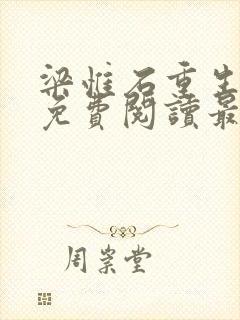 梁惟石重生
免費閱讀最
周崇堂